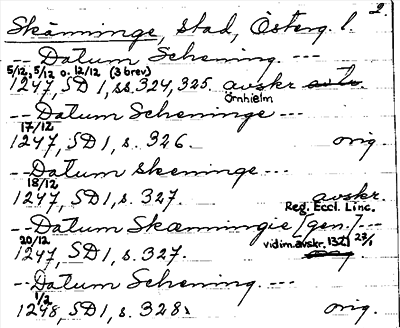 2
Skänninge, stad, Österg. l.
-- Datum Schening. ---
5/12, 5/12 o. 12/12 (3 brev)
1247, SD 1, ss. 324, 325. avskr
Örnhielm
-- Datum Scheninge ---
17/12
1247, SD 1, s. 326. orig.
-- Datum skeninge ---
18/12
1247, SD 1, s. 327. avskr.
Reg. Eccl. Linc.
-- Datum Skæninngie [gen.] ---
20/12 vidim.avskr. 1321 23/1
1247, SD 1, s. 327.
-- Datum Schening. ---
1/2
1248, SD 1, s. 328. orig.